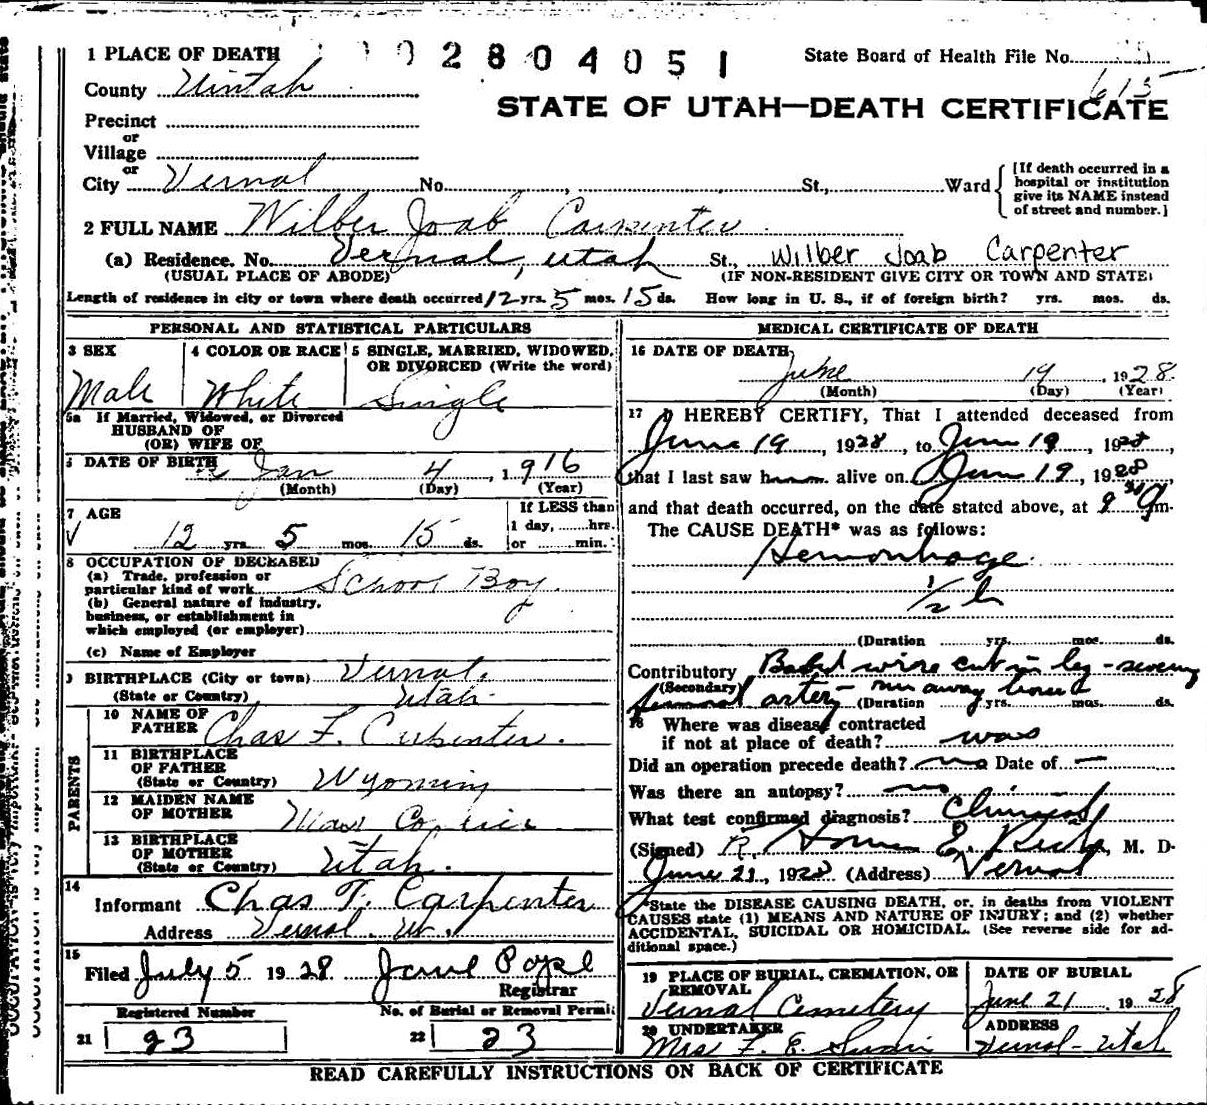 1 PLACE OF DEATH
2 8 0 4 0 5 1
State Board of Health File No.
615
County Uintah
STATE OF UTAH—DEATH CERTIFICATE
Precinct
or
Village
or
City Vernal No. , St., Ward
[If death occurred in a hospital or institution give its NAME instead of street and number.]
2 FULL NAME Wilber Joab Carpenter
(a) Residence. No. Vernal, Utah St., Wilber Joab Carpenter
(USUAL PLACE OF ABODE) (IF NON-RESIDENT GIVE CITY OR TOWN AND STATE)
Length of residence in city or town where death occurred 12 yrs. 5 mos. 15 ds. How long in U. S., if of foreign birth? yrs. mos. ds.
PERSONAL AND STATISTICAL PARTICULARS
3 SEX
Male
4 COLOR OR RACE
White
5 SINGLE, MARRIED, WIDOWED, OR DIVORCED (Write the word)
Single
5a If Married, Widowed, or Divorced
HUSBAND OF
(OR) WIFE OF
6 DATE OF BIRTH Jan 4, 1916
(Month) (Day) (Year)
7 AGE
12 yrs. 5 mos. 15 ds.
If LESS than
1 day, hrs.
or min.
8 OCCUPATION OF DECEASED
(a) Trade, profession or
particular kind of work School Boy
(b) General nature of industry,
business, or establishment in
which employed (or employer)
(c) Name of Employer
9 BIRTHPLACE (City or town) Vernal.
(State or Country) Utah.
PARENTS
10 NAME OF
FATHER Chas F. Carpenter.
11 BIRTHPLACE
OF FATHER
(State or Country) Wyoming
12 MAIDEN NAME
OF MOTHER
13 BIRTHPLACE
OF MOTHER
(State or Country) Utah.
14
Informant Chas F. Carpenter
Address Vernal. Ut.
15
Filed July 5 1928
Registrar
Registered Number
21 23
No. of Burial or Removal Permit
22 23
MEDICAL CERTIFICATE OF DEATH
16 DATE OF DEATH
June 19, 1928
(Month) (Day) (Year)
17 I HEREBY CERTIFY, That I attended deceased from
June 19, 1928, to June 19, 1928
that I last saw him alive on June 19, 1928,
and that death occurred, on the date stated above, at 9 m.
The CAUSE DEATH* was as follows:
Hemorrhage
1/2 h
(Duration yrs. mos. ds.
Contributory Babd wire cut in leg - severing
(Secondary) femoral artery - run away
(Duration yrs. mos. ds.
18 Where was disease contracted
if not at place of death? was
Did an operation precede death? no Date of —
Was there an autopsy? no
What test confirmed diagnosis? Clinical
(Signed) R. , M. D.
June 21, 1928 (Address) Vernal
*State the DISEASE CAUSING DEATH, or, in deaths from VIOLENT
CAUSES state (1) MEANS AND NATURE OF INJURY; and (2) whether
ACCIDENTAL, SUICIDAL OR HOMICIDAL. (See reverse side for ad-
ditional space.)
19 PLACE OF BURIAL, CREMATION, OR
REMOVAL
Vernal Cemetery
DATE OF BURIAL
June 21 1928
20 UNDERTAKER
Mrs F. E. Swain
ADDRESS
Vernal - Utah
READ CAREFULLY INSTRUCTIONS ON BACK OF CERTIFICATE